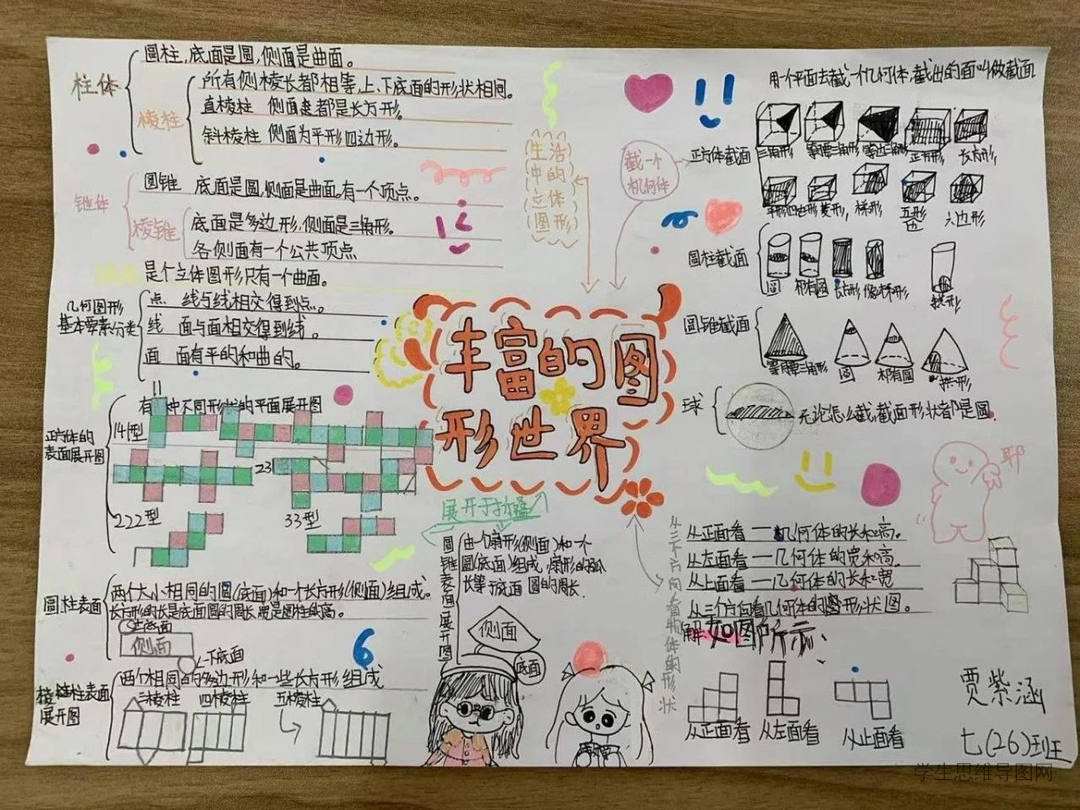 丰富的图
形世界
柱体
圆柱，底面是圆，侧面是曲面。
棱柱
所有侧棱长都相等，上、下底面的形状相同。
直棱柱 侧面都是长方形。
斜棱柱 侧面为平行四边形。
锥体
圆锥 底面是圆，侧面是曲面，有一个顶点。
棱锥
底面是多边形，侧面是三角形。
各侧面有一个公共顶点
是个立体图形只有一个曲面。
几何图形
基本要素分类
点 线与线相交得到点。
线 面与面相交得到线。
面 面有平的和曲的。
生活
中的
立体
图形
正方体的
表面展开图
中不同形状的平面展开图
141型
23
222型
33型
圆柱表面
两个大小相同的圆(底面)和一个长方形(侧面)组成。
长方形的长是底面圆的周长，宽是圆柱的高。
上底面
侧面
下底面
柱表面
展开图
两个相同的多边形和一些长方形组成
三棱柱 四棱柱 五棱柱
展开于折叠
圆锥表面展开图
由个扇形(侧面)和一个
圆(底面)组成，扇形的弧
长等于底面圆的周长.
侧面
底面
截一个
几何体
用一个平面去截一个几何体，截出的面叫做截面
正方体截面
三角形 等腰三角形 等边三角形 正方形 长方形
平行四边形 菱形 梯形 五形
边 六边形
圆柱截面
圆 椭圆 长方形 像梯形 拱形
圆锥截面
等腰三角形 圆 椭圆 拱形
球
无论怎么截，截面形状都是圆
耶
从三个方向看物体的形状
从正面看 — 几何体的长和高。
从左面看 — 几何体的宽和高.
从上面看 — 几何体的长和宽
从三个方向看几何体的形状图。
解 如图所示、
从正面看 从左面看 从上面看
贾紫涵
七(26)班
学生思维导图网